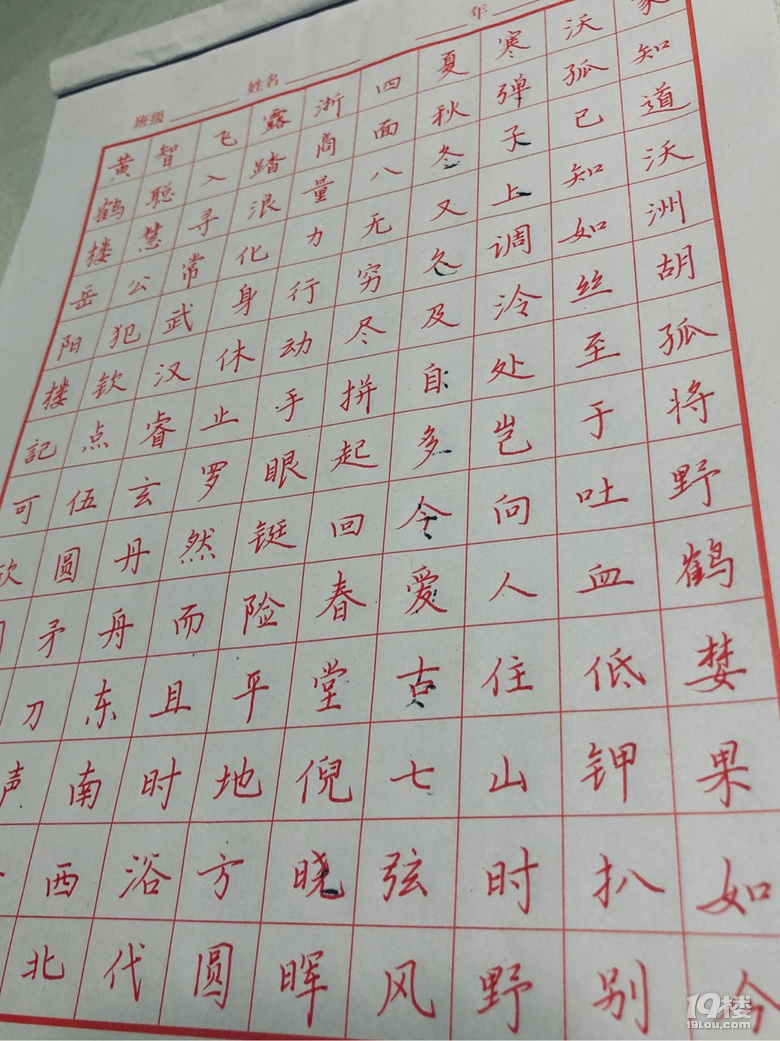 班级 姓名 年
黄鹤楼岳阳楼記可钦
智聪慧公犯钦点伍圆矛刀声
飞入寻常武汉睿玄丹舟东南西北
露踏浪化身休止罗然而且时浴代
浙商量力行动手眼铤险平地方圆
四面八无穷尽拼起回春堂倪晓晖
夏秋冬又久及自多令爱古七弦风
寒弹子上调冷处岂向人住山时野
沃孤已知如丝至于吐血低钾扒别
知道沃洲胡孤将野鹤婪果如今
19楼
19lou.com